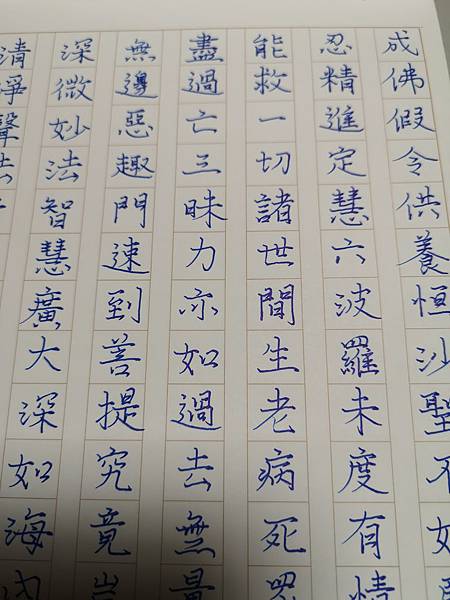 成佛假令供養恒沙聖不如
忍精進定慧六波羅未度有情
能救一切諸世間生老病死眾
盡過亡三昧力亦如過去無量
無邊惡趣門速到菩提究竟岸
深微妙法智慧廣大深如海內
清淨聲法